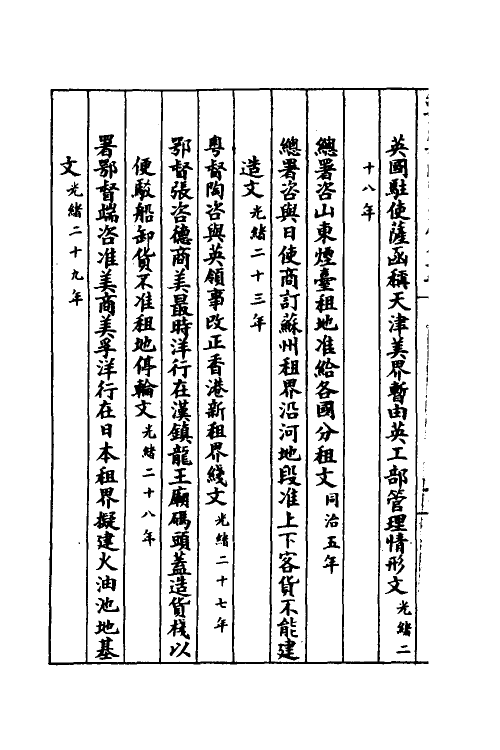 英國駐使薩函稱天津美界暫由英工部管理情形文光緒二
十八年
總署咨山東煙臺租地准給各國分租文同治五年
總署咨與日使商訂蘇州租界沿河地段准上下客貨不能建
造文光緒二十三年
粤督陶咨與英領事改正香港新租界綫文光緒二十七年
鄂督張咨德商美最時洋行在漢鎮龍王廟碼頭蓋造貨棧以
便駁船卸貨不准租地停輪文光緒二十八年
署鄂督端咨准美商美孚洋行在日本租界擬建火油池地基
文光緒二十九年